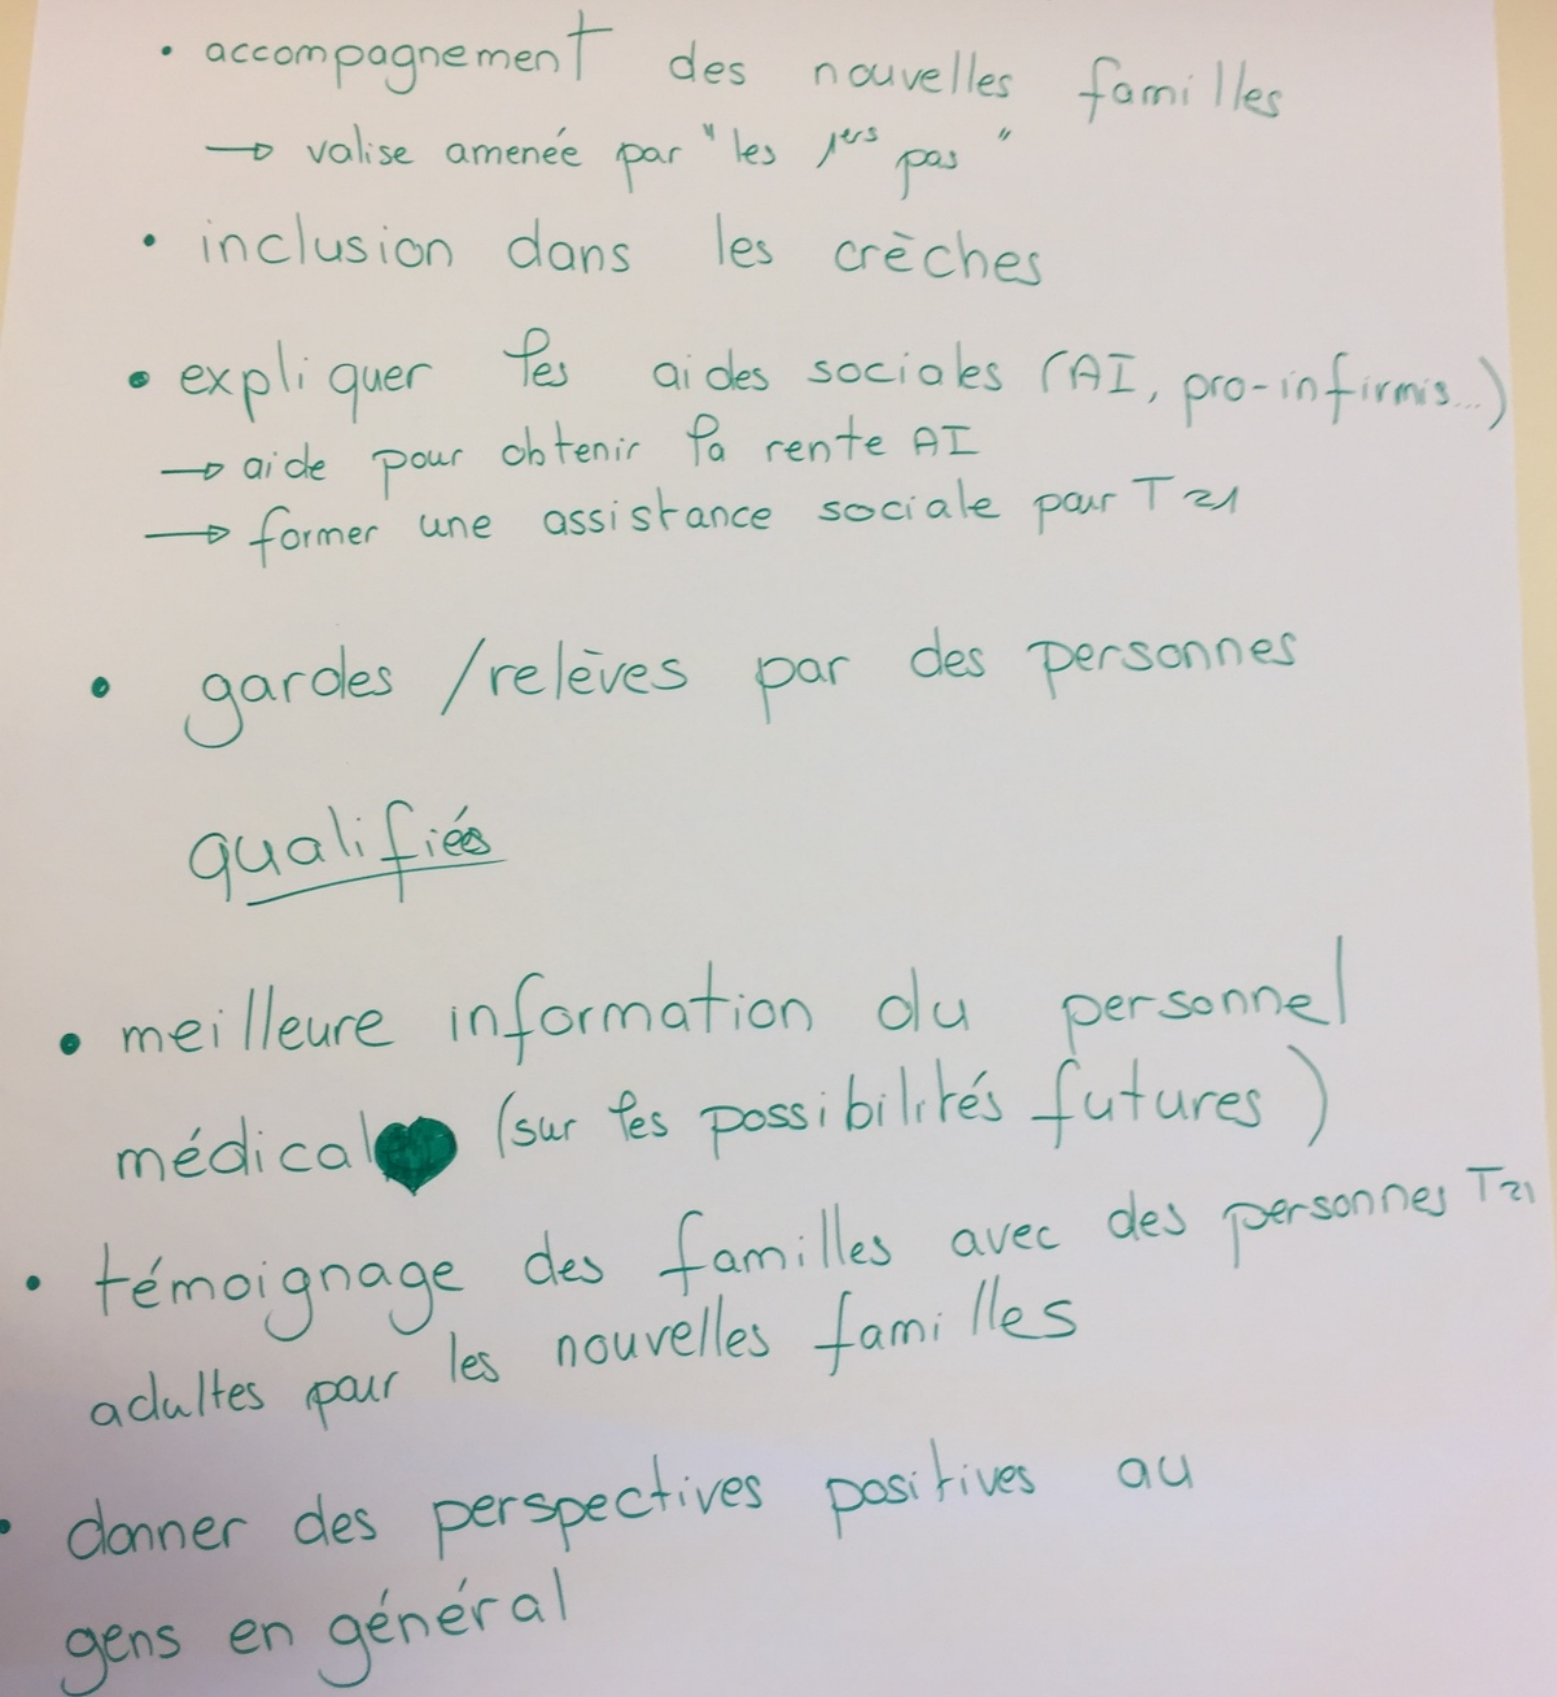 • accompagnement des nouvelles familles
→ valise amenée par "les 1ers pas"
• inclusion dans les crèches
• expliquer les aides sociales (AI, pro-infirmis...)
→ aide pour obtenir la rente AI
→ former une assistance sociale pour T21
• gardes / relèves par des personnes
qualifiés
• meilleure information du personnel
médical (sur les possibilités futures)
• témoignage des familles avec des personnes T21
adultes pour les nouvelles familles
• donner des perspectives positives au
gens en général